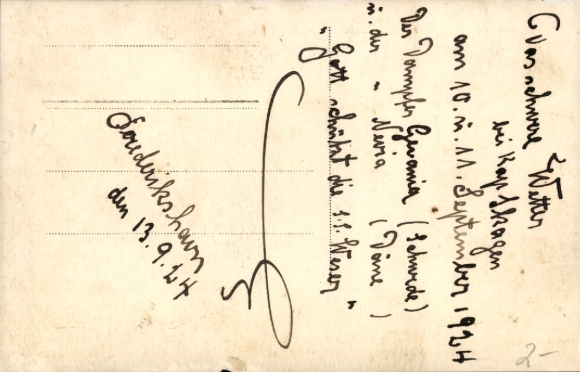 Das schwere Wetter
bei Kap Skagen
am 10. u. 11. September 1924
Der Dampfer Gevania (Schwede)
u. der " Nevia (Däne)
" Gott schützt die S.S. Weser "
Frederikshavn
den 13.9.24
2-